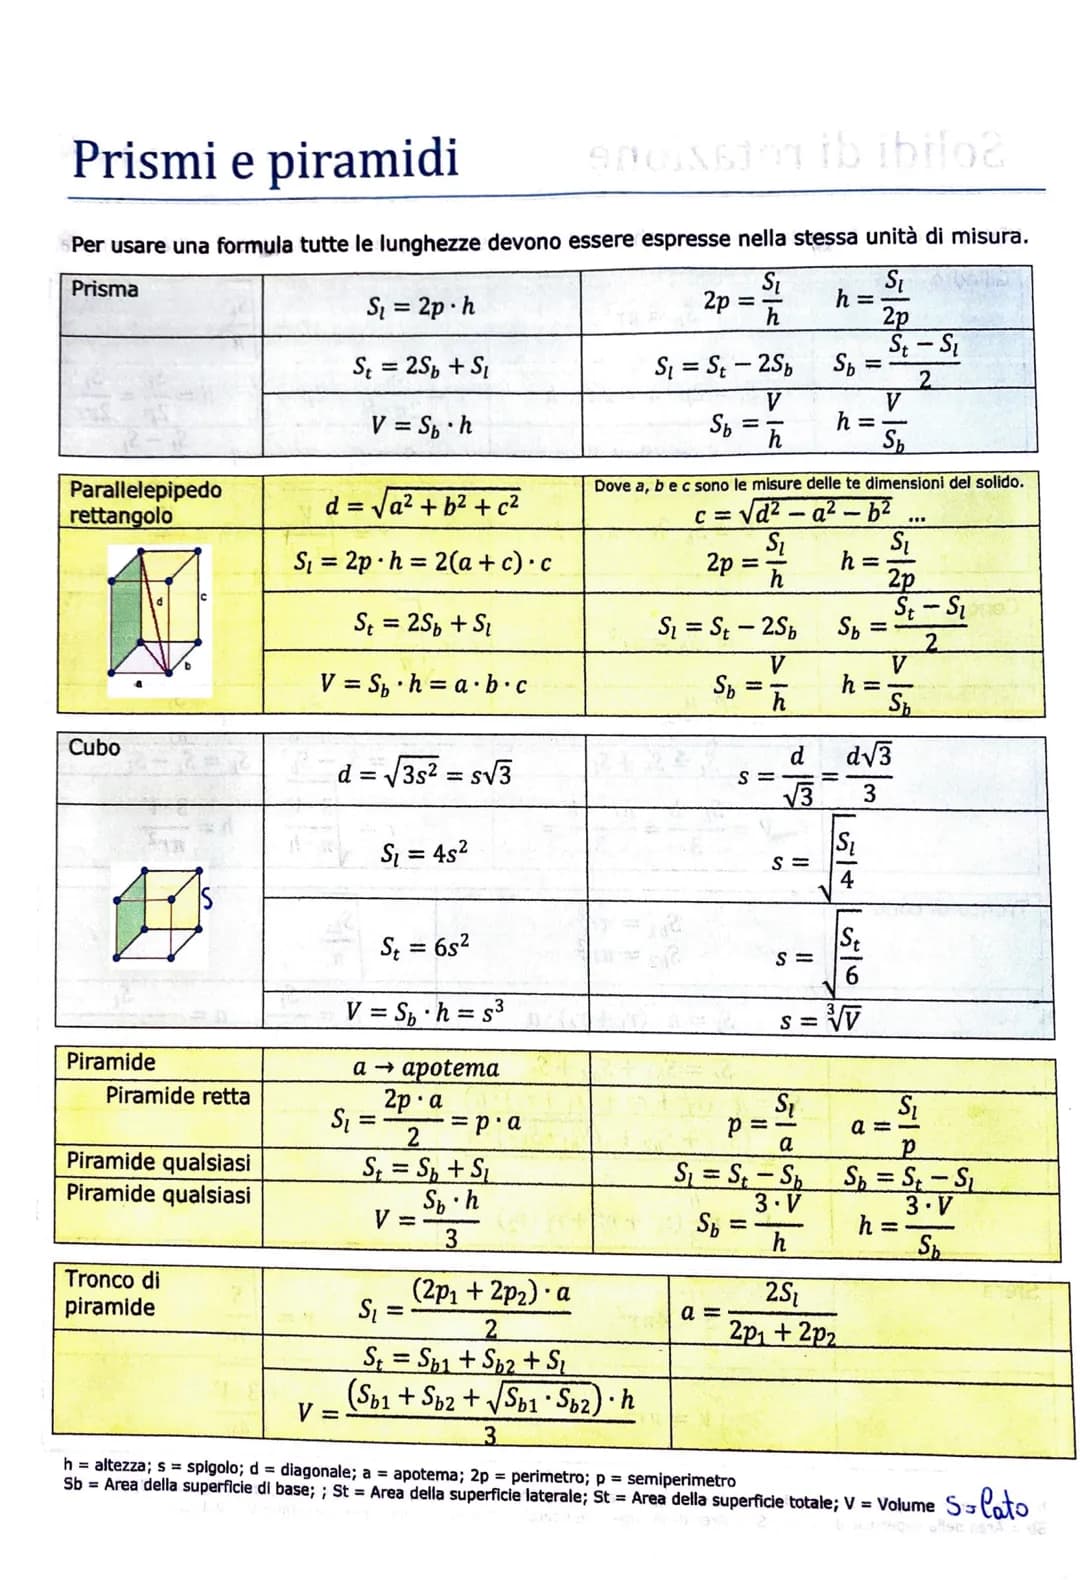 Prismi e piramidi
Per usare una formula tutte le lunghezze devono essere espresse nella stessa unità di misura.
Prisma
S_l = 2p · h
2p = S_l/h   h = S_l/2p
S_t = 2S_b + S_l
S_l = S_t − 2S_b   S_b = (S_t − S_l)/2
V = S_b · h
S_b = V/h   h = V/S_b
Parallelepipedo rettangolo
d = √(a² + b² + c²)
Dove a, b e c sono le misure delle te dimensioni del solido.
c = √(d² − a² − b²) ...
S_l = 2p · h = 2(a + c) · c
2p = S_l/h   h = S_l/2p
S_t = 2S_b + S_l
S_l = S_t − 2S_b   S_b = (S_t − S_l)/2
V = S_b · h = a · b · c
S_b = V/h   h = V/S_b
d
c
b
a
Cubo
d = √(3s²) = s√3
s = d/√3 = d√3/3
S_l = 4s²
s = √(S_l/4)
S
S_t = 6s²
s = √(S_t/6)
V = S_b · h = s³
s = ³√V
Piramide
a → apotema
Piramide retta
S_l = (2p · a)/2 = p · a
p = S_l/a   a = S_l/p
Piramide qualsiasi
S_t = S_b + S_l
S_l = S_t − S_b   S_b = S_t − S_l
Piramide qualsiasi
V = (S_b · h)/3
S_b = (3 · V)/h   h = (3 · V)/S_b
Tronco di piramide
S_l = ((2p₁ + 2p₂) · a)/2
a = 2S_l/(2p₁ + 2p₂)
S_t = S_b1 + S_b2 + S_l
V = ((S_b1 + S_b2 + √(S_b1 · S_b2)) · h)/3
h = altezza; s = spigolo; d = diagonale; a = apotema; 2p = perimetro; p = semiperimetro
Sb = Area della superficie di base; ; St = Area della superficie laterale; St = Area della superficie totale; V = Volume S=lato